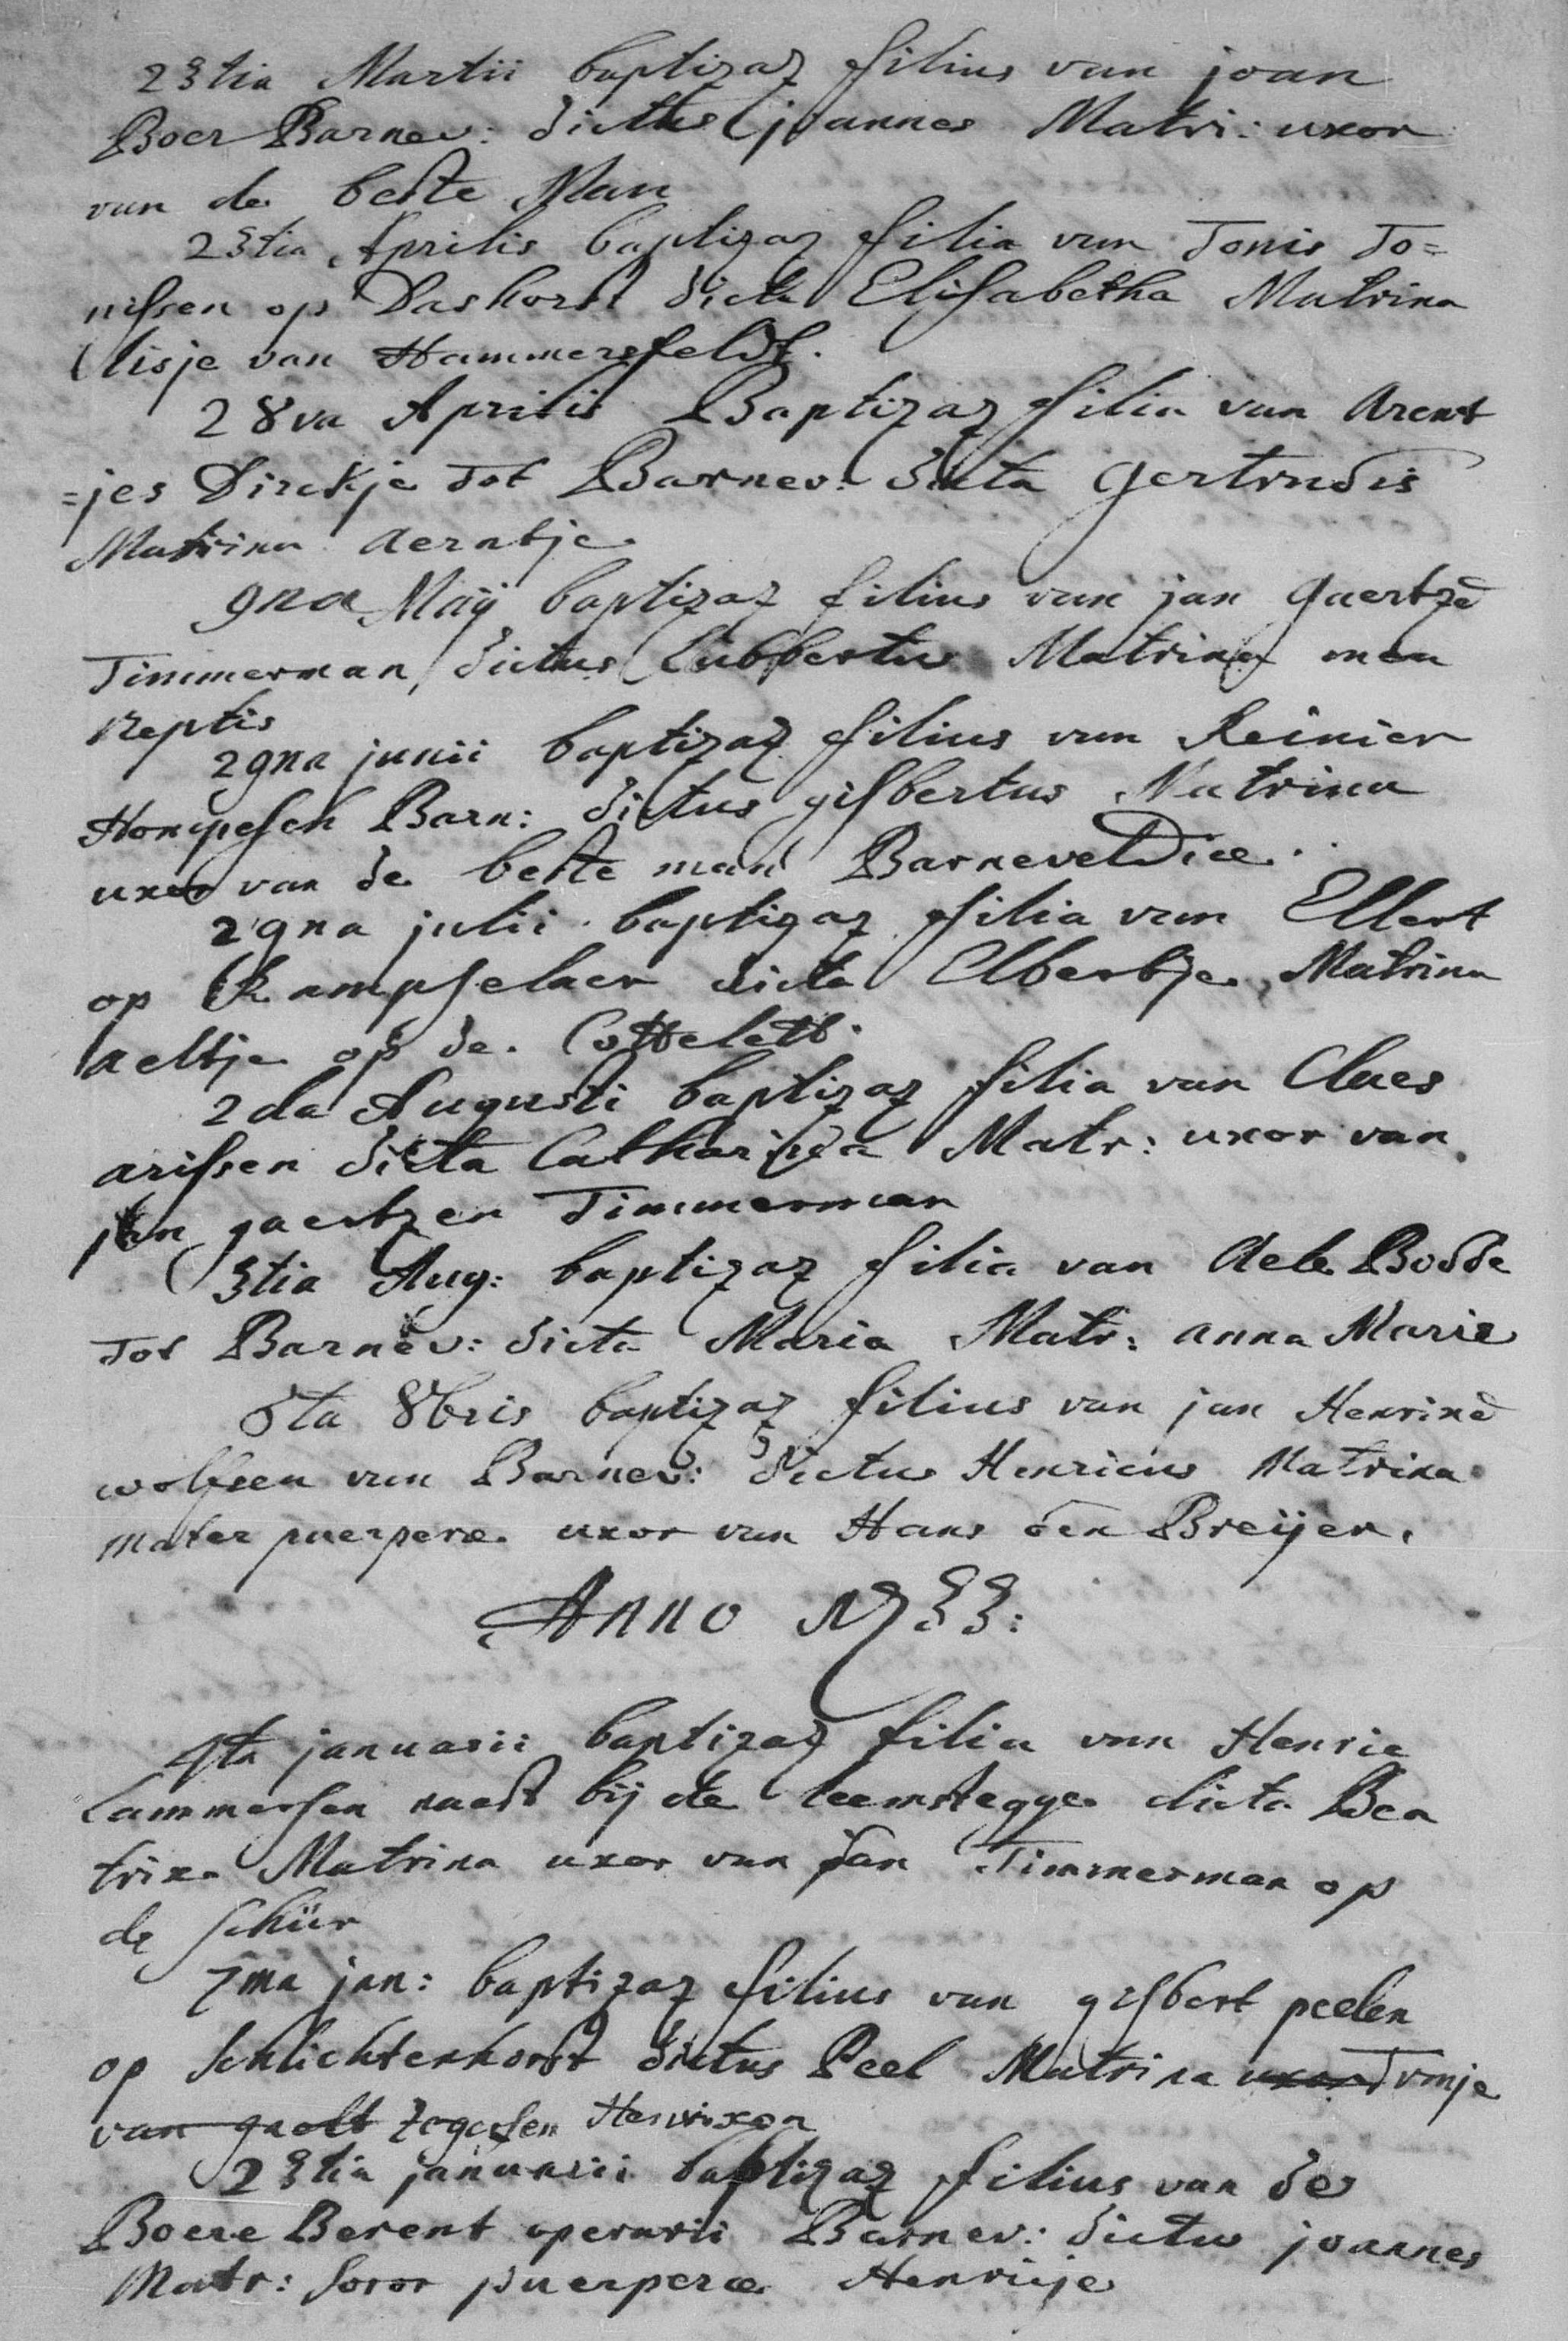 23tia Martii baptizaz filius van joan
Boer Barnev: dictus joannes Matri: uxor
van de beste Man
23tia Aprilis baptizaz filia van Tonis To=
nissen op Dashorst dicta Elisabetha Matrina
lisje van Hammersfeldt.
28va Aprilis Baptizaz filia van Arent
=jes Dirckje tot Barnev: dicta gertrudis
Matrina aerntje
9na Maij baptizaz filius van jan gaertzē
Timmerman, dictus lubbertus Matrina mea
neptis
29na junii baptizaz filius van Reinier
Hompesch Barn: dictus gisbertus Matrina
uxor van de beste man BarneveldicE..
29na julii baptizaz filia van Ellert
op Kampselaer dicta Elbertje Matrina
aeltje op de
2da Augusti baptizaz filia van Claes
arissen dicta Catharina Matr: uxor van
jan gaertzen Timmerman
3tia Aug: baptizaz filia van Aele Bodde
tot Barnev: dicta Maria Matr: anna Marie
6ta 8bris baptizaz filius van jan Henrixē
wolfsen van Barnev: dictus Henricus Matrina
mater puerperæ uxor van Hans den Breijer.
Anno 1733:
4ta januarii baptizaz filia van Henric
lammersen naest bij de leemstegge dicta Bea
trix Matrina uxor van jan Timmerman op
de schür
7ma jan: baptizaz filius van gisbert peelen
op schlichtenhorst dictus Peel Matrina uxor Tonje
van Zegersen Henrixen
23tia januarii baptizaz filius van de
Boere Berent operarii Barnev: dictus joannes
Matr: soror puerperæ Henricje